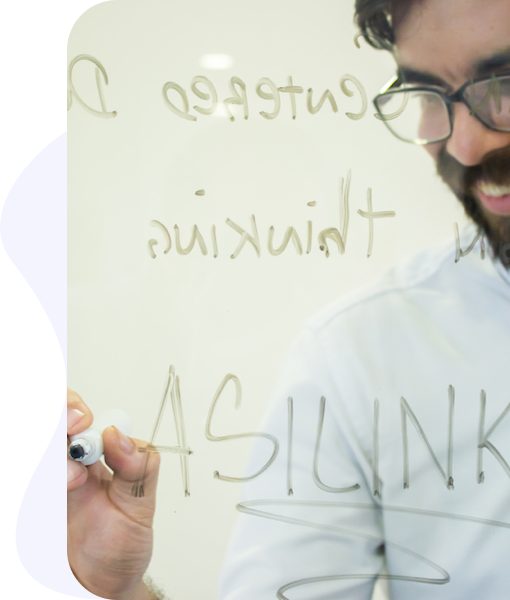 CenteReD D
N thinking
ASILINK